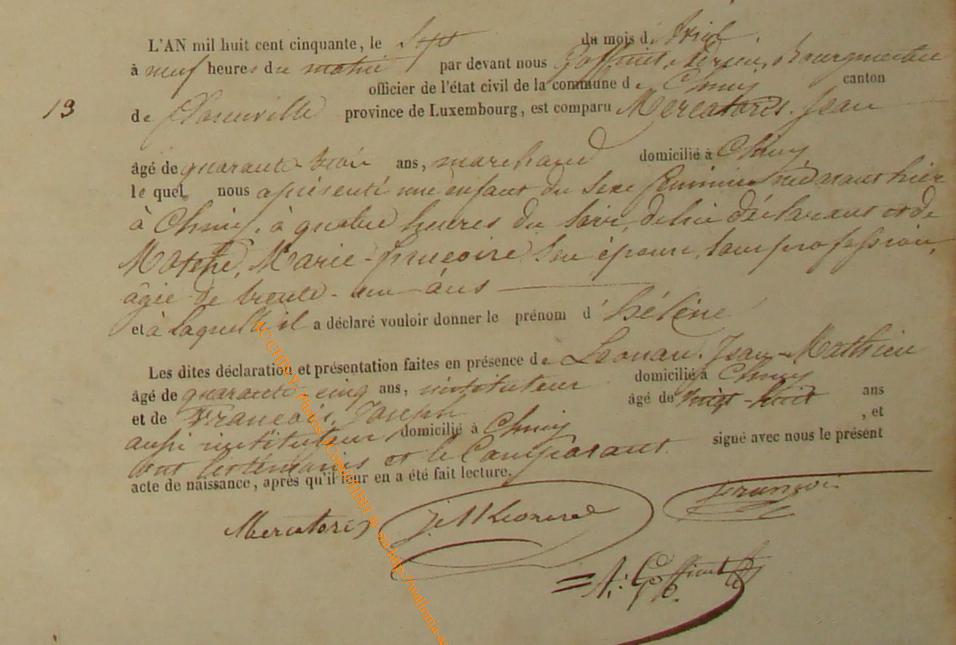 L'AN mil huit cent cinquante, le Sept du mois d'Avril.
à neuf heures du matin par devant nous Goffinet, Adrien, Bourgmestre
officier de l'état civil de la commune de Chiny canton
13
de Florenville province de Luxembourg, est comparu Mercatoris, Jean
âgé de quarante trois ans, marchand domicilié à Chiny
lequel nous a présenté une enfant du sexe féminin née avant hier
à Chiny, à quatre heures du soir, de lui déclarant et de
Marie-françoise son épouse, sans profession,
âgée de trente-un ans
et à laquelle il a déclaré vouloir donner le prénom d'hélène
Les dites déclaration et présentation faites en présence de Léonard, Jean-Mathieu
âgé de quarante cinq ans, instituteur domicilié à Chiny
et de François, âgé de vingt-huit ans
aussi instituteur, domicilié à Chiny, et
ont les témoins et le Comparant signé avec nous le présent
acte de naissance, après qu'il leur en a été fait lecture.
Mercatoris J. M Léonard François
A: Goffinet